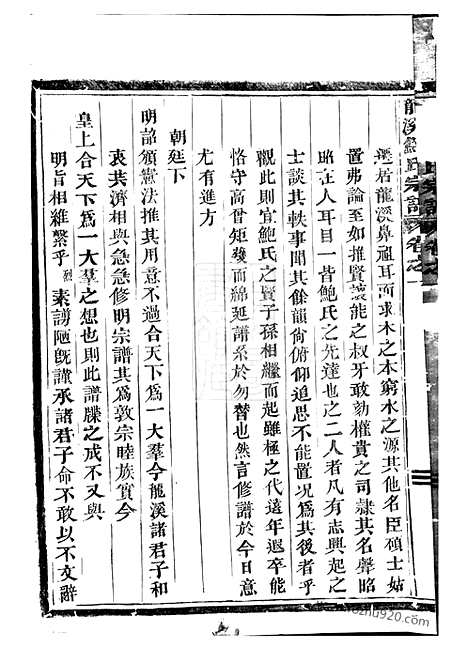 龍溪鮑氏宗譜 卷之一
遷居龍溪鼻祖耳而求木之本窮水之源其他名臣碩士姑
置弗論至如推賢讓能之叔牙敢劾權貴之司隸其名聲昭
昭在人耳目一昔鮑氏之先達也之二人者凡有志興起之
士談其軼事聞其餘龍尙俯仰追思不能置况爲其後者乎
觀此則宜鮑氏之賢子孫相繼而起雖極之代遠年遐卒能
恪守高曾矩矱而綿延譜系於勿替也然言修譜於今日意
尤有進方
朝廷下
明詔頒憲法推其用意不過合天下爲一大羣今龍溪諸君子和
衷共濟相與急急修明宗譜其爲敦宗睦族實今
皇上合天下爲一大羣之想也則此譜牒之成不又與
明旨相維繫乎烈素謭陋旣謹承諸君子命不敢以不文辭
zupu920.com